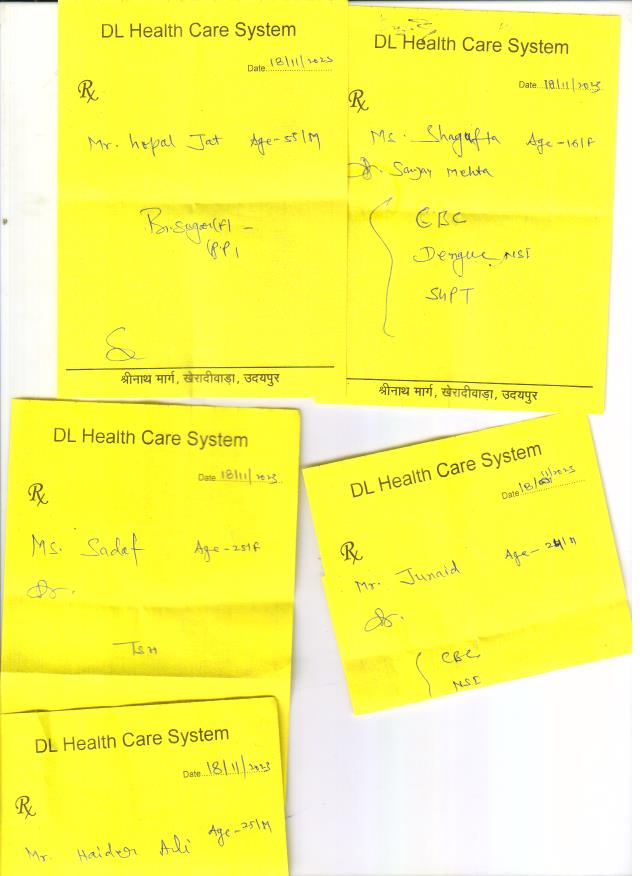 DL Health Care System
Date 18/11/2023
Rx
Mr. Gopal Jat Age-55/M
B.Sugar(F) -
(PP)
श्रीनाथ मार्ग, खेरादीवाड़ा, उदयपुर
DL Health Care System
Date 18/11/2023
Rx
Ms. Shagufta Age-16/F
Dr. Sanjay Mehta
CBC
Dengue NSI
SGPT
श्रीनाथ मार्ग, खेरादीवाड़ा, उदयपुर
DL Health Care System
Date 18/11/2023
Rx
Ms. Sadaf Age-25/F
Dr.
TSH
DL Health Care System
Date 18/11/2023
Rx
Mr. Junaid Age-24/M
Dr.
CBC
NSI
DL Health Care System
Date 18/11/2023
Rx
Mr. Haider Ali Age-25/M